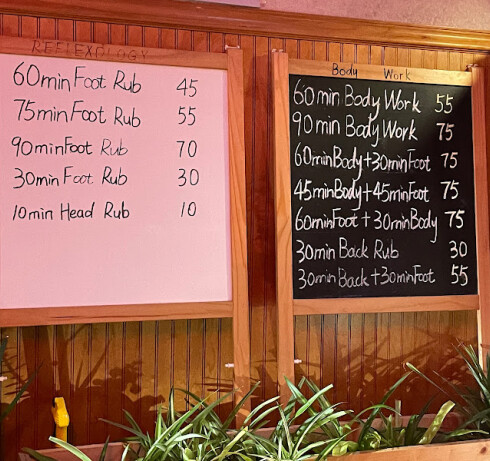 REFLEXOLOGY
60min Foot Rub 45
75min Foot Rub 55
90min Foot Rub 70
30min Foot Rub 30
10min Head Rub 10
Body Work
60min Body Work 55
90min Body Work 75
60minBody+30minFoot 75
45minBody+45minFoot 75
60minFoot+30minBody 75
30min Back Rub 30
30minBack+30minFoot 55